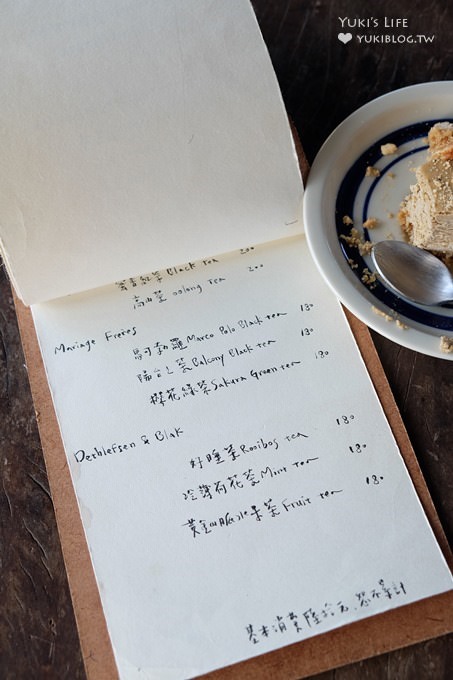 YUKI'S LIFE
YUKIBLOG.TW
紅茶 Black tea 200
高山茶 oolong tea 200
Mariage Freres
馬可孛羅 Marco Polo Black tea 180
陽台上茶 Balcony Black tea 180
櫻花綠茶 Sakura Green tea 180
Dethlefsen & Balk
好睡茶 Rooibos tea 180
沁韻荷花茶 Mint tea 180
黃金山脈水果茶 Fruit tea 180
基本消費 陸拾元